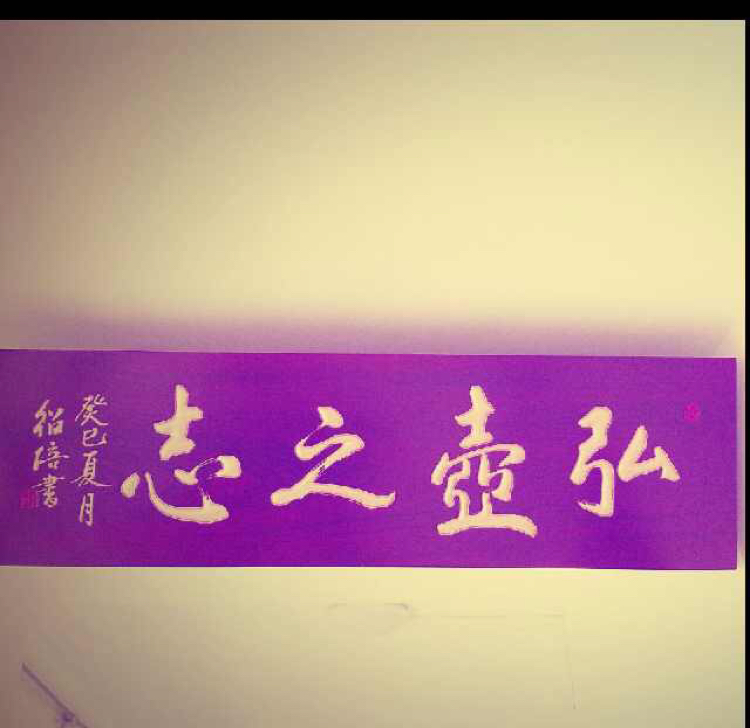 弘壺之志
癸巳夏月
紹培書